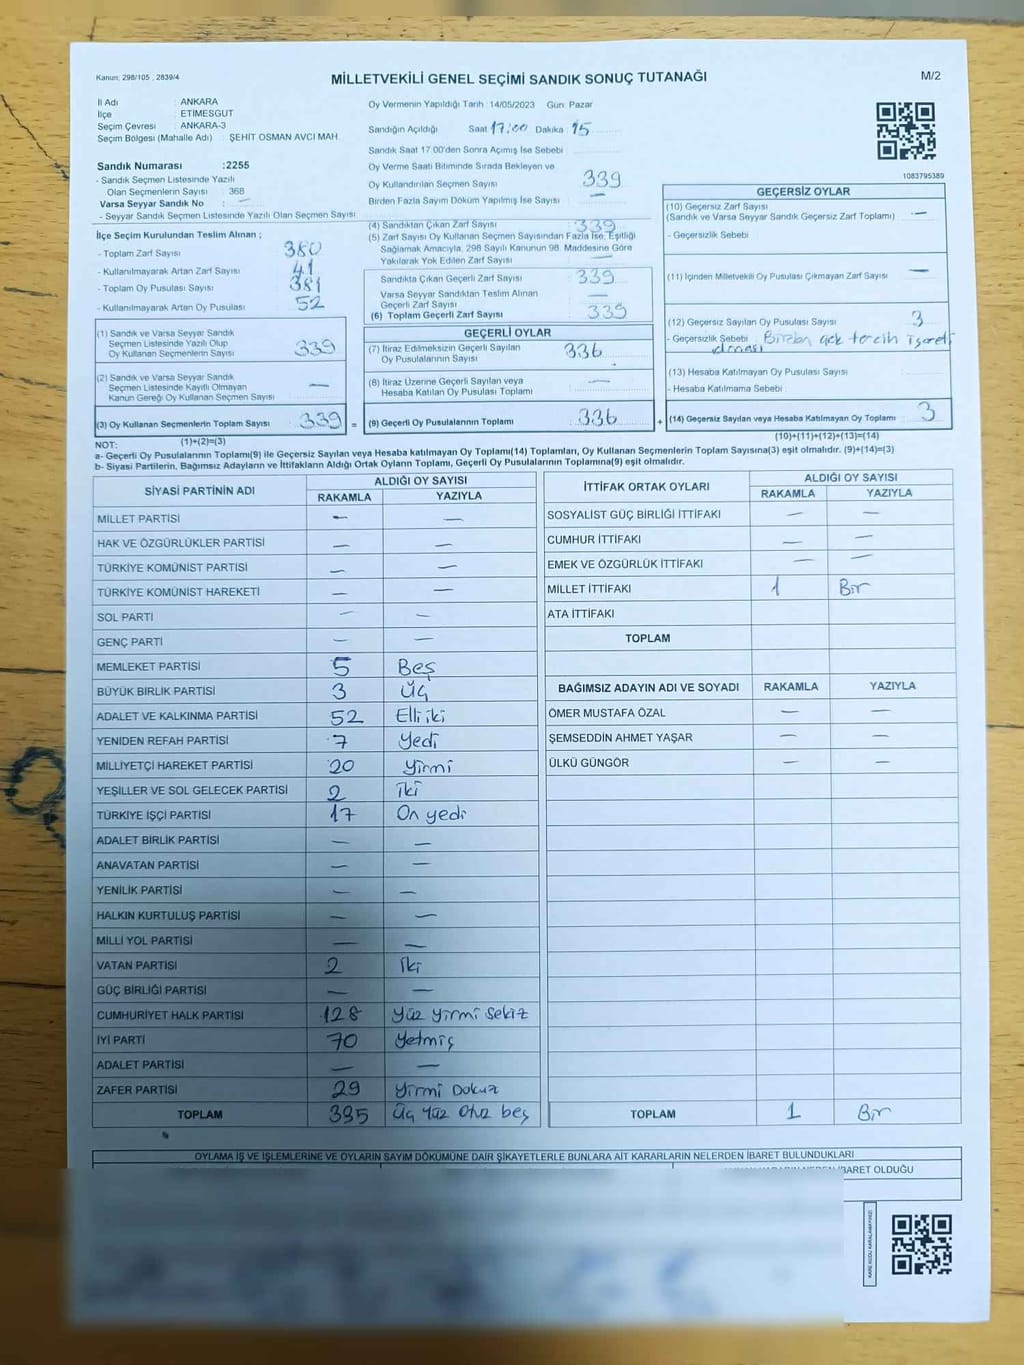 Kanun; 298/105 , 2839/4
MİLLETVEKİLİ GENEL SEÇİMİ SANDIK SONUÇ TUTANAĞI
M/2
İl Adı : ANKARA
İlçe : ETİMESGUT
Seçim Çevresi : ANKARA-3
Seçim Bölgesi (Mahalle Adı) : ŞEHİT OSMAN AVCI MAH.
Sandık Numarası :2255
- Sandık Seçmen Listesinde Yazılı
Olan Seçmenlerin Sayısı : 368
Varsa Seyyar Sandık No : —
- Seyyar Sandık Seçmen Listesinde Yazılı Olan Seçmen Sayısı
İlçe Seçim Kurulundan Teslim Alınan ;
- Toplam Zarf Sayısı 380
- Kullanılmayarak Artan Zarf Sayısı 41
- Toplam Oy Pusulası Sayısı 381
- Kullanılmayarak Artan Oy Pusulası 52
(1) Sandık ve Varsa Seyyar Sandık
Seçmen Listesinde Yazılı Olup
Oy Kullanan Seçmenlerin Sayısı 339
(2) Sandık ve Varsa Seyyar Sandık
Seçmen Listesinde Kayıtlı Olmayan
Kanun Gereği Oy Kullanan Seçmen Sayısı —
(3) Oy Kullanan Seçmenlerin Toplam Sayısı 339 =
(1)+(2)=(3)
Oy Vermenin Yapıldığı Tarih 14/05/2023 Gün: Pazar
Sandığın Açıldığı Saat 17:00 Dakika 15
Sandık Saat 17.00'den Sonra Açımış İse Sebebi
Oy Verme Saati Bitiminde Sırada Bekleyen ve
Oy Kullandırılan Seçmen Sayısı 339
Birden Fazla Sayım Döküm Yapılmış İse Sayısı —
(4) Sandıktan Çıkan Zarf Sayısı : 339
(5) Zarf Sayısı Oy Kullanan Seçmen Sayısından Fazla İse, Eşitliği
Sağlamak Amacıyla, 298 Sayılı Kanunun 98. Maddesine Göre
Yakılarak Yok Edilen Zarf Sayısı —
Sandıkta Çıkan Geçerli Zarf Sayısı 339
Varsa Seyyar Sandıktan Teslim Alınan
Geçerli Zarf Sayısı —
(6) Toplam Geçerli Zarf Sayısı 339
GEÇERLİ OYLAR
(7) İtiraz Edilmeksizin Geçerli Sayılan
Oy Pusulalarının Sayısı 336
(8) İtiraz Üzerine Geçerli Sayılan veya
Hesaba Katılan Oy Pusulası Toplamı —
(9) Geçerli Oy Pusulalarının Toplamı 336 +
1083795389
GEÇERSİZ OYLAR
(10) Geçersiz Zarf Sayısı
(Sandık ve Varsa Seyyar Sandık Geçersiz Zarf Toplamı) —
- Geçersizlik Sebebi
(11) İçinden Milletvekili Oy Pusulası Çıkmayan Zarf Sayısı —
(12) Geçersiz Sayılan Oy Pusulası Sayısı 3
- Geçersizlik Sebebi Birden çok tercih işareti
olması
(13) Hesaba Katılmayan Oy Pusulası Sayısı :
- Hesaba Katılmama Sebebi :
(14) Geçersiz Sayılan veya Hesaba Katılmayan Oy Toplamı 3
(10)+(11)+(12)+(13)=(14)
NOT:
a- Geçerli Oy Pusulalarının Toplamı(9) ile Geçersiz Sayılan veya Hesaba katılmayan Oy Toplamı(14) Toplamları, Oy Kullanan Seçmenlerin Toplam Sayısına(3) eşit olmalıdır. (9)+(14)=(3)
b- Siyasi Partilerin, Bağımsız Adayların ve İttifakların Aldığı Ortak Oyların Toplamı, Geçerli Oy Pusulalarının Toplamına(9) eşit olmalıdır.
SİYASİ PARTİNİN ADI ALDIĞI OY SAYISI
RAKAMLA YAZIYLA
MİLLET PARTİSİ — —
HAK VE ÖZGÜRLÜKLER PARTİSİ — —
TÜRKİYE KOMÜNİST PARTİSİ — —
TÜRKİYE KOMÜNİST HAREKETİ — —
SOL PARTİ — —
GENÇ PARTİ — —
MEMLEKET PARTİSİ 5 Beş
BÜYÜK BİRLİK PARTİSİ 3 Üç
ADALET VE KALKINMA PARTİSİ 52 Elli iki
YENİDEN REFAH PARTİSİ 7 Yedi
MİLLİYETÇİ HAREKET PARTİSİ 20 Yirmi
YEŞİLLER VE SOL GELECEK PARTİSİ 2 İki
TÜRKİYE İŞÇİ PARTİSİ 17 On yedi
ADALET BİRLİK PARTİSİ — —
ANAVATAN PARTİSİ — —
YENİLİK PARTİSİ — —
HALKIN KURTULUŞ PARTİSİ — —
MİLLİ YOL PARTİSİ — —
VATAN PARTİSİ 2 İki
GÜÇ BİRLİĞİ PARTİSİ — —
CUMHURİYET HALK PARTİSİ 128 Yüz Yirmi Sekiz
İYİ PARTİ 70 Yetmiş
ADALET PARTİSİ — —
ZAFER PARTİSİ 29 Yirmi Dokuz
TOPLAM 335 Üç Yüz Otuz beş
İTTİFAK ORTAK OYLARI ALDIĞI OY SAYISI
RAKAMLA YAZIYLA
SOSYALİST GÜÇ BİRLİĞİ İTTİFAKI — —
CUMHUR İTTİFAKI — —
EMEK VE ÖZGÜRLÜK İTTİFAKI — —
MİLLET İTTİFAKI 1 Bir
ATA İTTİFAKI
TOPLAM
BAĞIMSIZ ADAYIN ADI VE SOYADI RAKAMLA YAZIYLA
ÖMER MUSTAFA ÖZAL — —
ŞEMSEDDİN AHMET YAŞAR — —
ÜLKÜ GÜNGÖR — —
TOPLAM 1 Bir
OYLAMA İŞ VE İŞLEMLERİNE VE OYLARIN SAYIM DÖKÜMÜNE DAİR ŞİKAYETLERLE BUNLARA AİT KARARLARIN NELERDEN İBARET BULUNDUKLARI
İBARET OLDUĞU
KARE KODU KARALAMAYINIZ!